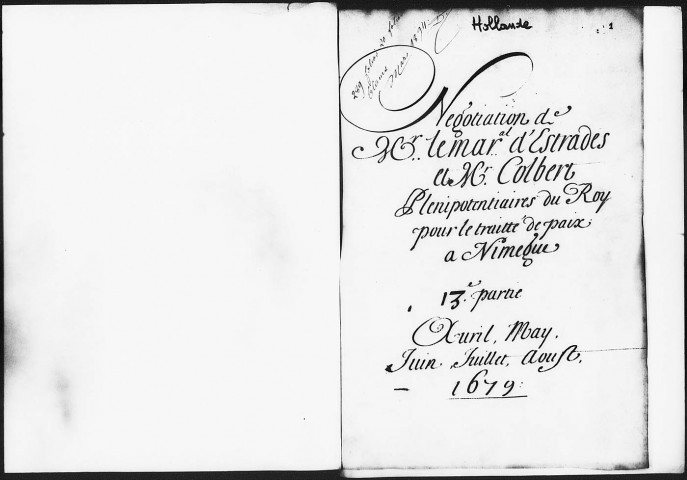 Hollande
1
249 feuillets
Mars 1874.
Negotiation de
Mr. le mar.al d'Estrades
et Mr. Colbert
Plenipotentiaires du Roy
pour le traitté de paix
a Nimegue
13.e partie
Avril, May.
Juin. Juillet, Aoust.
1679: